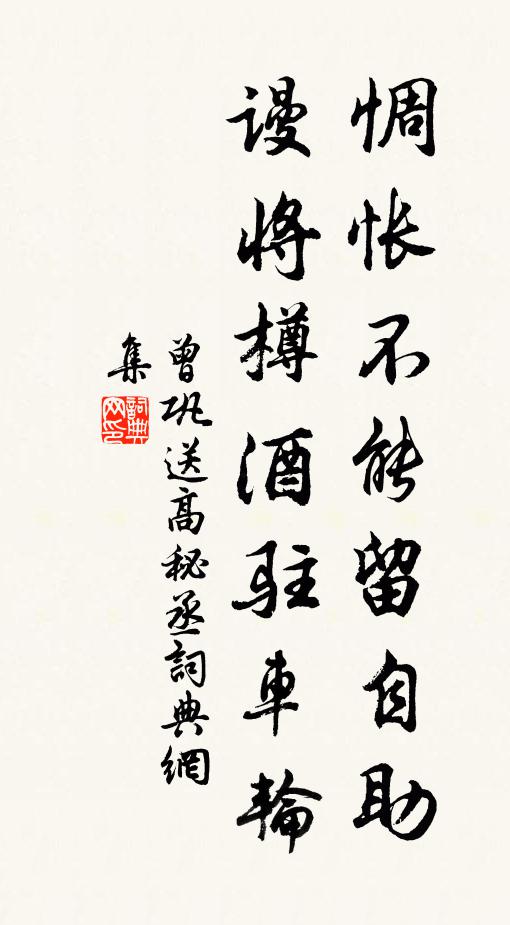 惆怅不能留自助
谩将樽酒驻車輪
曾巩送高秘丞詞典網
集
詞典
网印